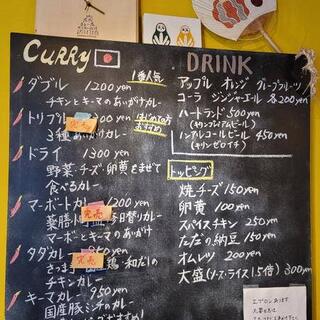 CURRY
1番人気
ダブル 1200yen
チキンとキーマのあいがけカレー
トリプル 00yen
完売
はじめての方おすすめ
3種あいがけカレー
ドライ 1300yen
野菜・チーズ・卵黄をまぜて
食べるカレー
マーボーカレー 1200yen
完売
薬膳 日替りカレー
マーボとキーマのあいがけ
タダカレー 950yen
完売
さつま 鶏・和だしの
チキンカレー
キーマカレー 950yen
国産豚ミンチのカレー
DRINK
アップル オレンジ グレープフルーツ
コーラ ジンジャーエール 各200yen
ハートランド 500yen
(キリンプレミアムビール)
ノンアルコールビール 450yen
(キリンゼロイチ)
トッピング
焼チーズ 150yen
卵黄 100yen
スパイスチキン 250yen
ただの納豆 150yen
オムレツ 200yen
大盛(ソース・ライス1.5倍) 300yen